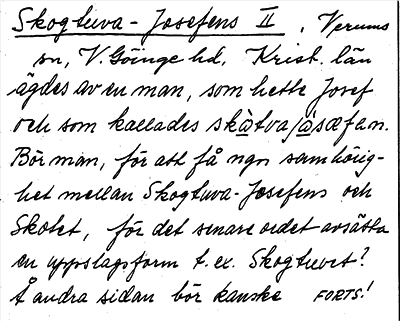 Skogtuva-Josefens II, Verums
sn, V. Göinge hd, Krist. län
ägdes av en man, som hette Josef
och som kallades skàtva/åsæfan.
Bör man, för att få ngn samhörig-
het mellan Skogtuva-Josefens och
Skotet, för det senare ordet avsätta
en uppslagsform t.ex. Skogtuvet?
Å andra sidan bör kanske FORTS!